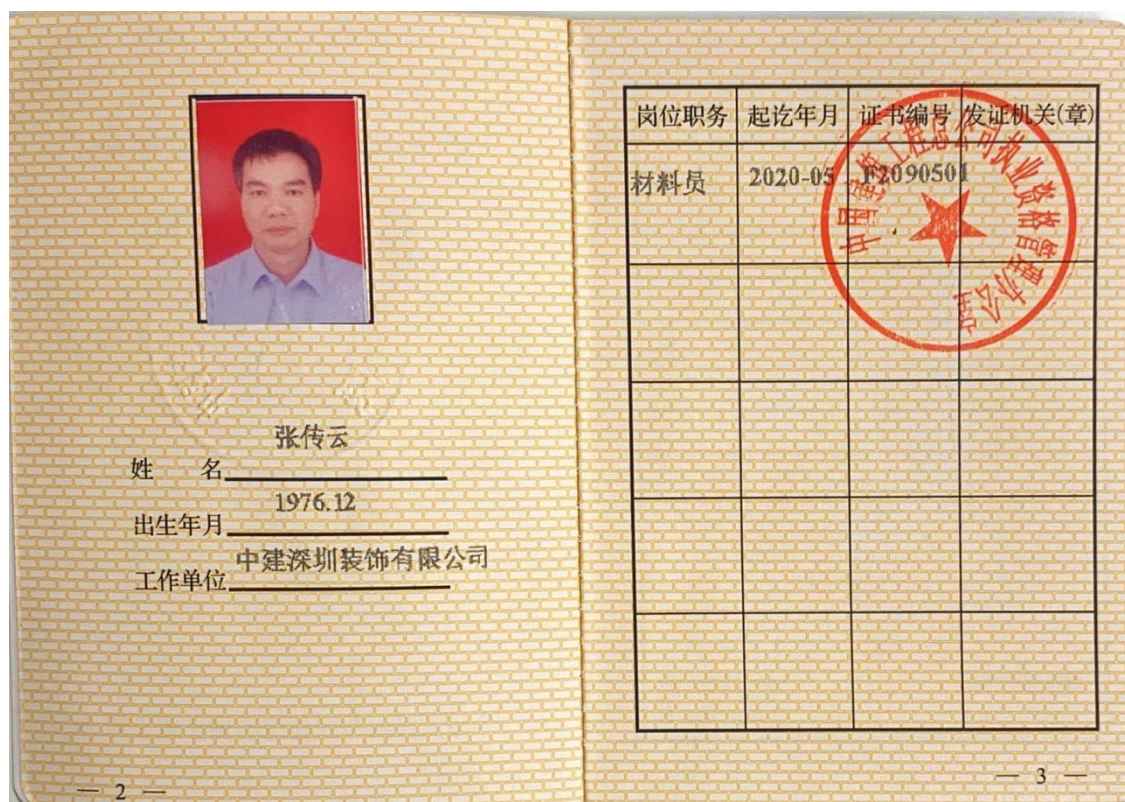 张传云
姓 名
1976.12
出生年月
中建深圳装饰有限公司
工作单位
— 2 —
岗位职务 起讫年月 证书编号 发证机关(章)
材料员 2020-05 F2090501
中国建筑工程总公司执业资格管理办公室
— 3 —